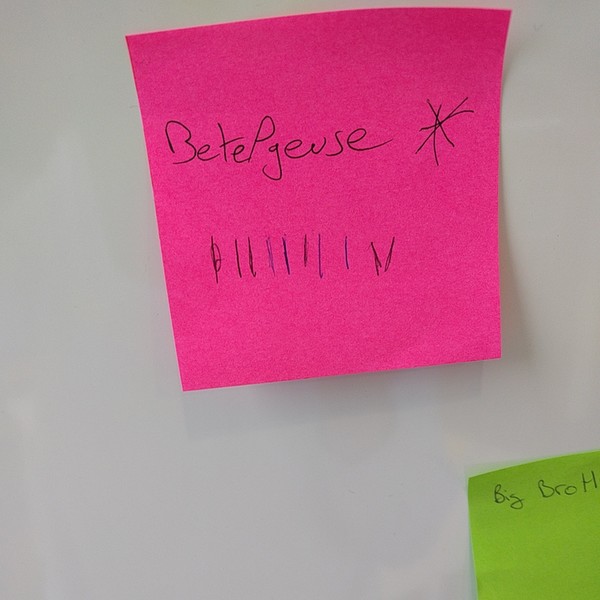 Betelgeuse *
Big BroH